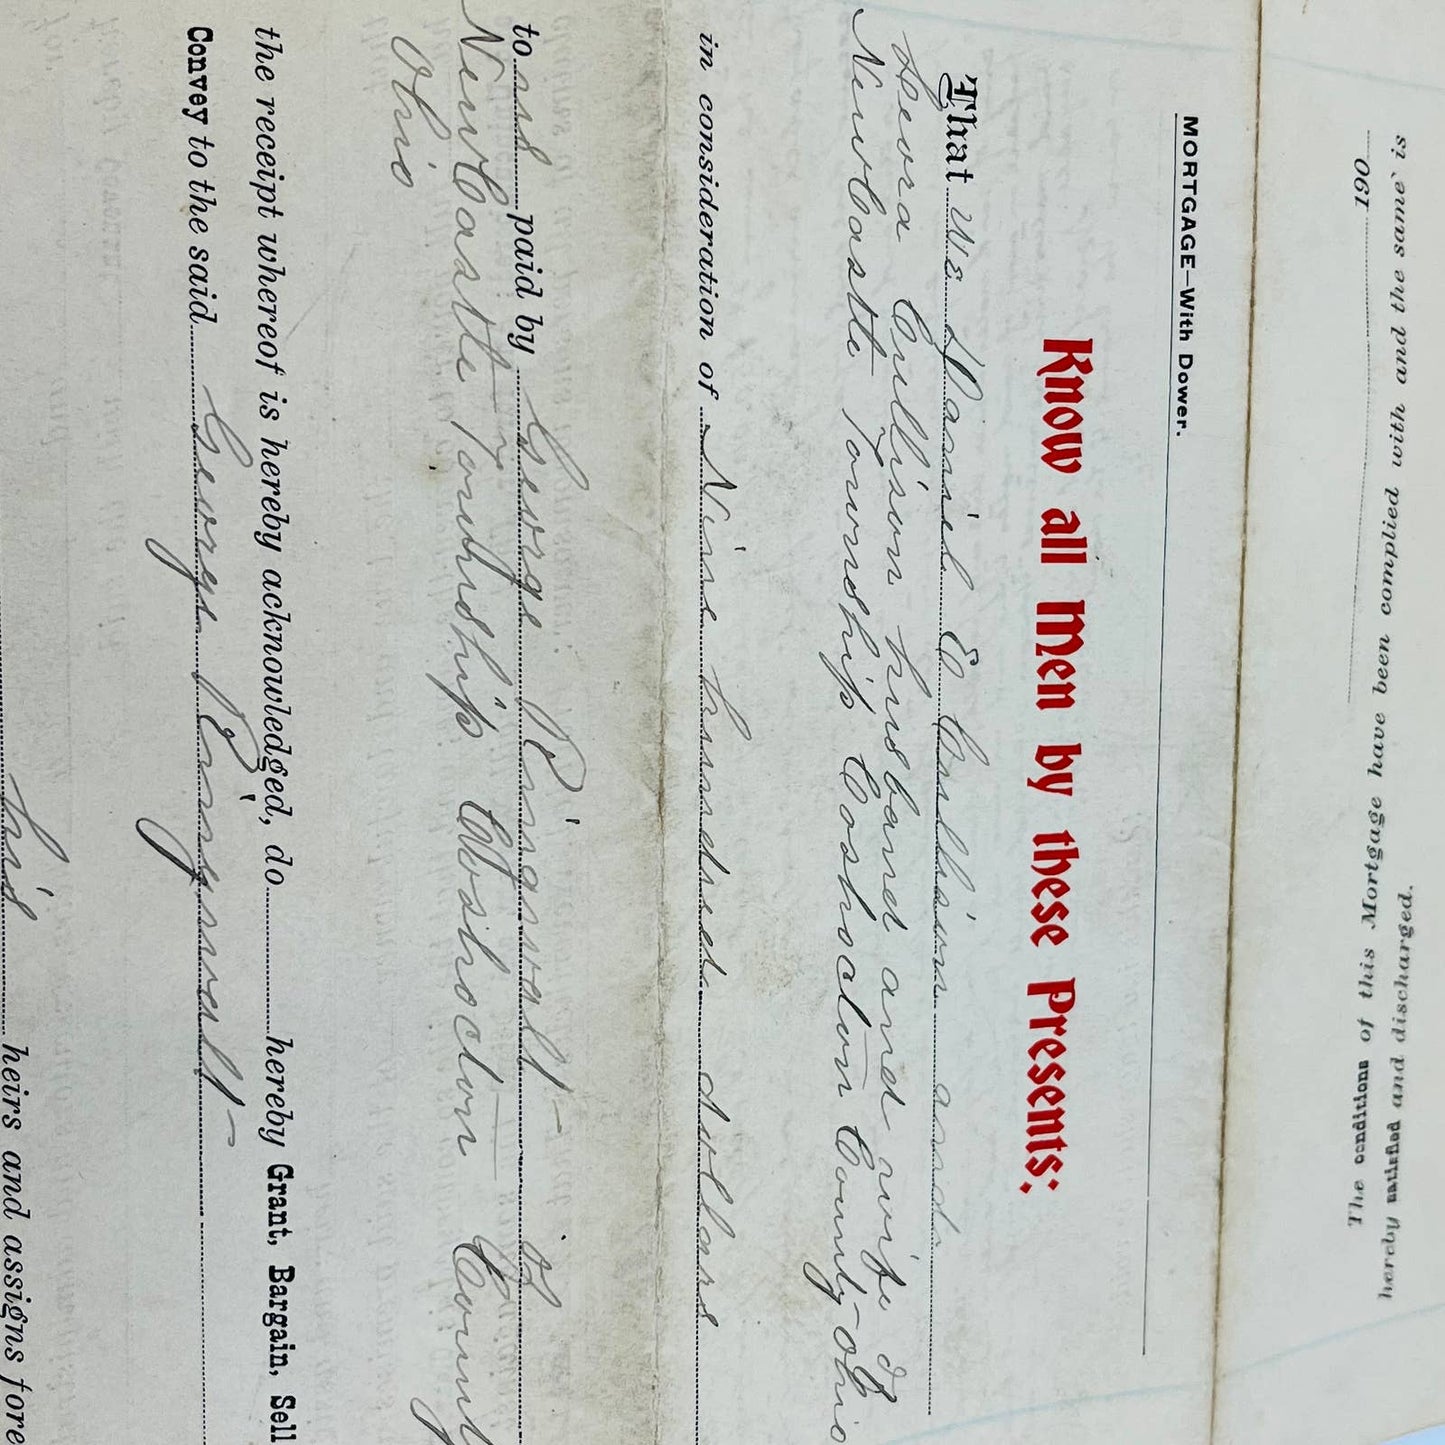 MORTGAGE—With Dower.
Know all Men by these Presents:
That We Daniel E Cullison and
Cullison husband and wife of
NewCastle Township Coshocton County Ohio
in consideration of Nine hundred dollars
to paid by George Ringwalt of
NewCastle Township Coshocton County
Ohio
the receipt whereof is hereby acknowledged, do hereby Grant, Bargain, Sell
Convey to the said George Ringwalt
his heirs and assigns fore
190
The conditions of this Mortgage have been complied with and the same is
hereby satisfied and discharged.